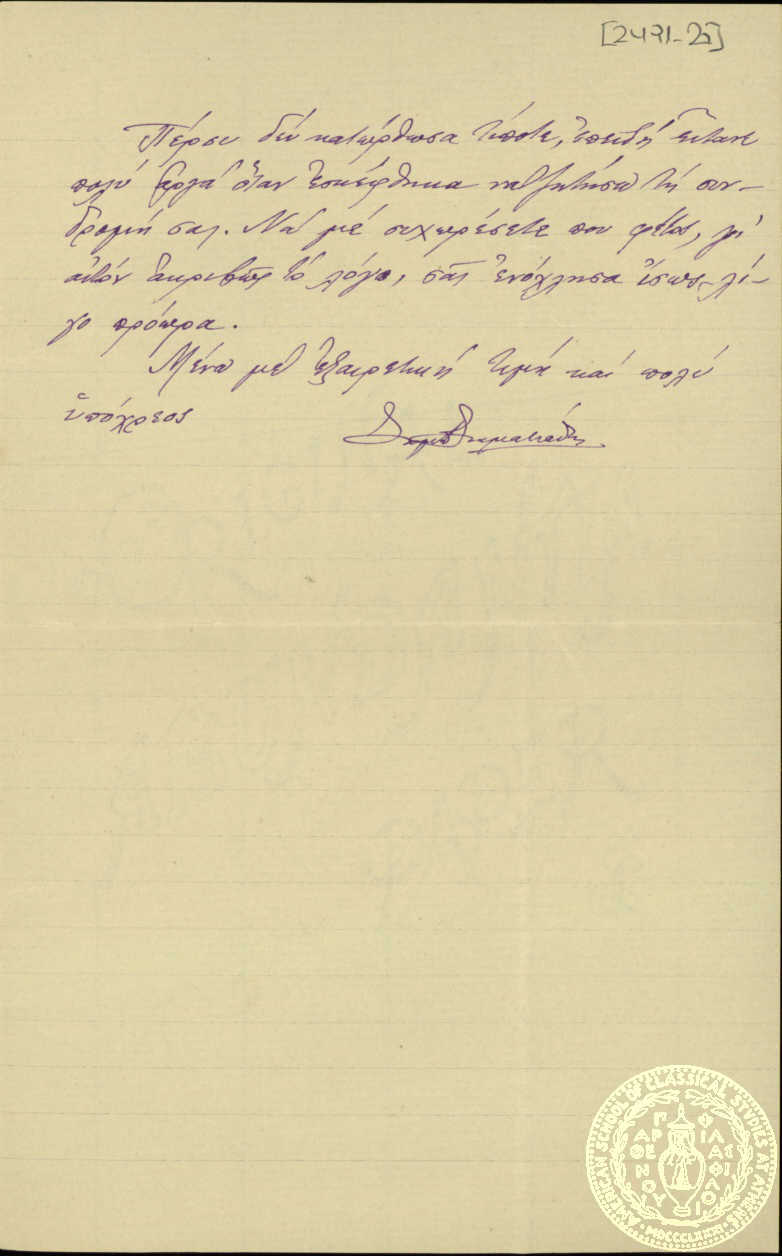 [2491-25]
Πέρσυ δὲν κατώρθωσα τίποτε, ἐπειδὴ εἴτανε
πολὺ ἀργὰ ὅταν ἐσκέφθηκα νὰ ζητήσω τὴ συν-
δρομή σας. Νὰ μὲ συχωρέσετε που φέτος, γι'
αὐτὸν ἀκριβῶς τὸ λόγο, σᾶς ἐνόχλησα ἴσως λί-
γο πρόωρα.
Μένω μὲ ἐξαιρετικὴ τιμὴ καὶ πολὺ
ὑπόχρεος
AMERICAN SCHOOL OF CLASSICAL STUDIES AT ATHENS
ΠΑΡΘΕΝΟΥ ΦΙΛΑΣ ΦΙΛΟΙ
MDCCCLXXXI